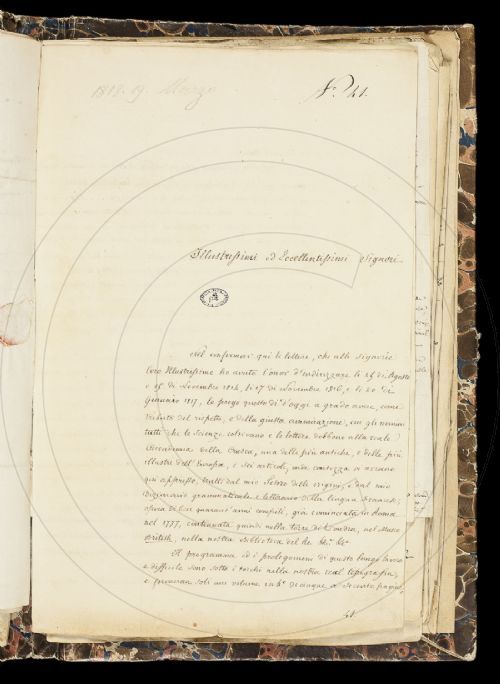 1818. 19. Marzo
N.º 41.
Illustrissimi ed Eccellentissimi Signori
Nel confermar qui le lettere, che alle Signorie
loro Illustrissime ho avuto l'onor d'indirizzare li 26 di Agosto
e di Novembre li 17 di Novembre 1816, e li 20 di
Gennaro 1817, le prego questo dì d'oggi a grado avere, come
tributo del rispetto, e della giusta ammirazione, che gli uomini
tutti che le Scienze coltivano e le lettere, debbono alla reale
Accademia della Crusca, una delle più antiche, e delle più
illustre dell'Europa, i sei articoli, una contezza
qui appresso, tratti dal mio Tesoro delle origini, e dal mio
Dizionario grammaticale e letterario della lingua Francese,
opera di ben quarant'anni compiti, già cominciata in Roma
nel 1777, continuata quindi nella torre di Londra, nel Museo
British, nella nostra Biblioteca del Re &c. &c.
Il programma ed i prolegomeni di questo lungo lavoro
e difficile sono sotto i torchi nella nostra real tipografia,
e faranno soli un volume in 4.º di cinque a seicento pagine,
41.